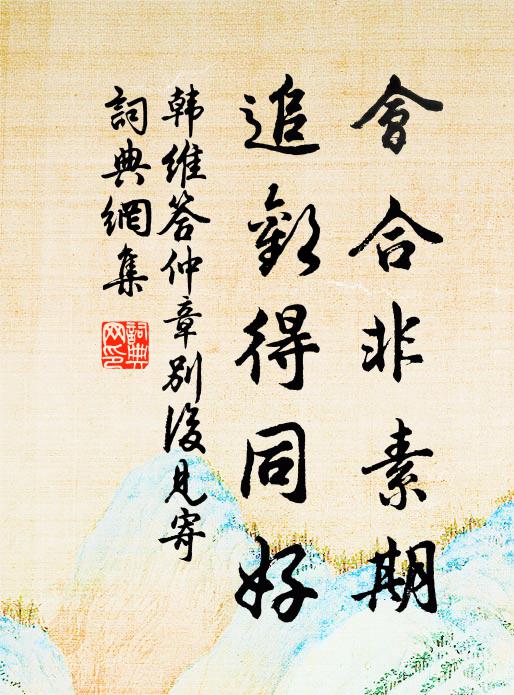 會合非素期
追歡得同好
韩維答仲章别後見寄
詞典網集
詞典網印